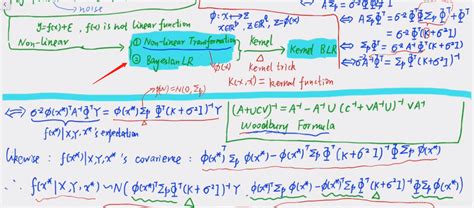 noise
y=f(x)+ε, f(x) is not linear function
Non-linear
① Non-linear Transformation
② Bayesian LR
Kernel
Kernel BLR
Kernel trick
K(x,x')= kernel function
φ: x↦z
x∈ℝᵖ, z∈ℝ^q, z=φ(x)
φ(x)
p(w)=N(0,Σp)
⇔ σ⁻²φ(x*)ᵀA⁻¹Φᵀ Y = φ(x*)ᵀΣpΦᵀ(K+σ²I)⁻¹Y
f(x*)|X,Y,x*'s expectation
(A+UCV)⁻¹ = A⁻¹ - A⁻¹U (C⁻¹+VA⁻¹U)⁻¹ VA⁻¹
Woodbury Formula
Likewise: f(x*)|X,Y,x*'s covariance: φ(x*)ᵀΣpφ(x*)-φ(x*)ᵀΣpΦᵀ(K+σ²I)⁻¹ΦΣpφ(x*)
∴ f(x*)|X,Y,x* ~ N(φ(x*)ᵀΣpΦᵀ(K+σ²I)⁻¹Y, φ(x*)ᵀΣpφ(x*)-φ(x*)ᵀΣpΦᵀ(K+σ²I)⁻¹ΦΣpφ(x*))